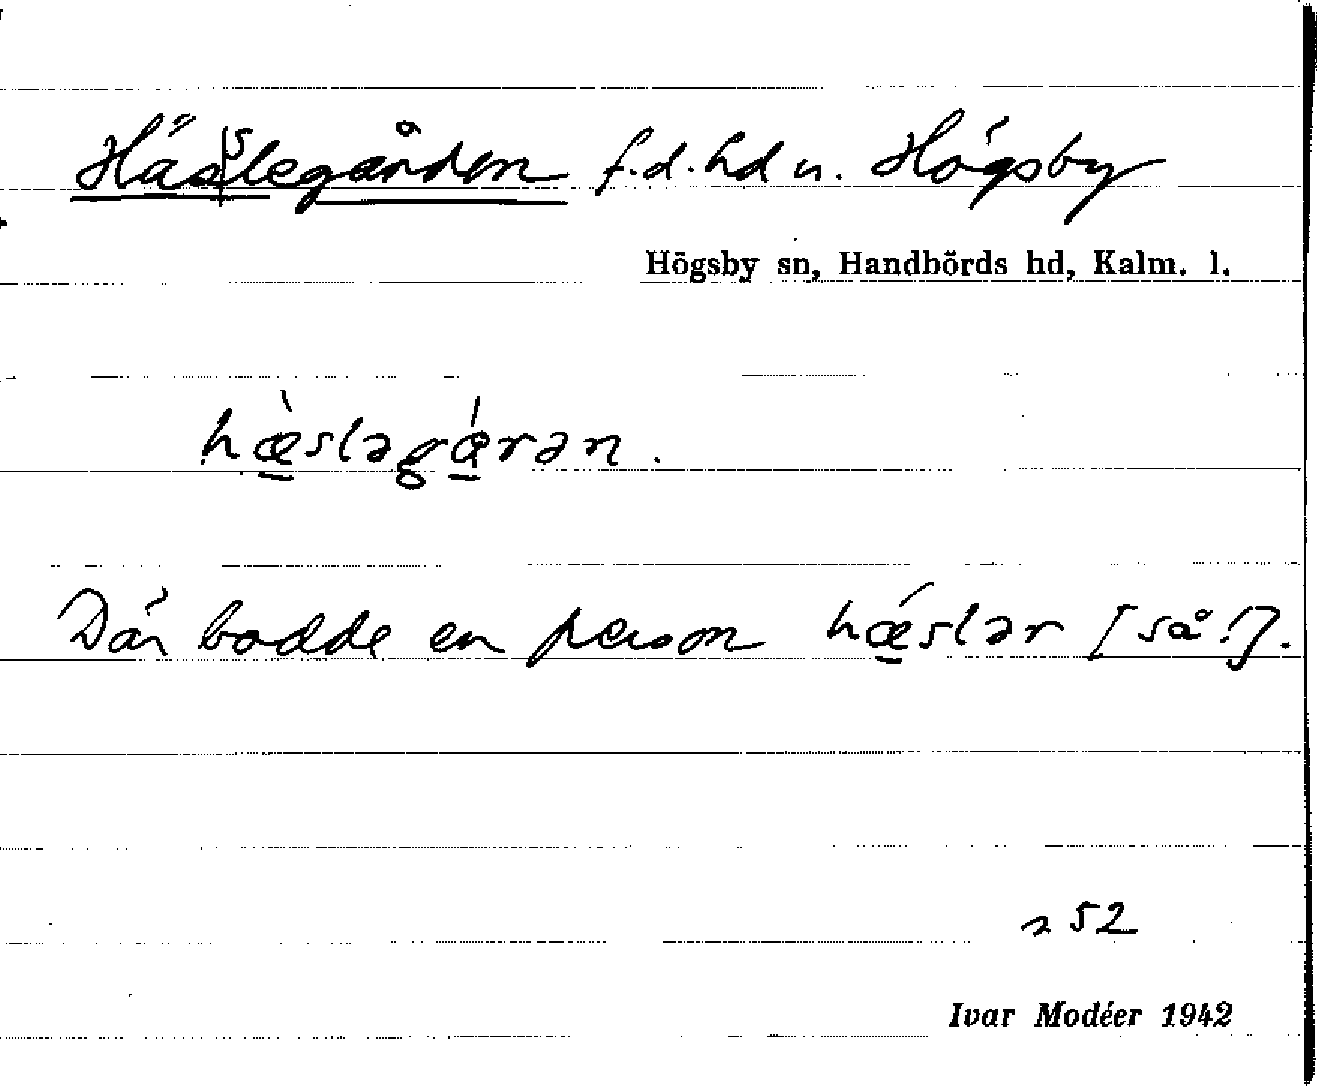 Häslegården f.d. hd u. Högsby
Högsby sn, Handbörds hd, Kalm. l.
hæ̀sləgǽrən.
Där bodde en person hǽslər [så!].
52
Ivar Modéer 1942